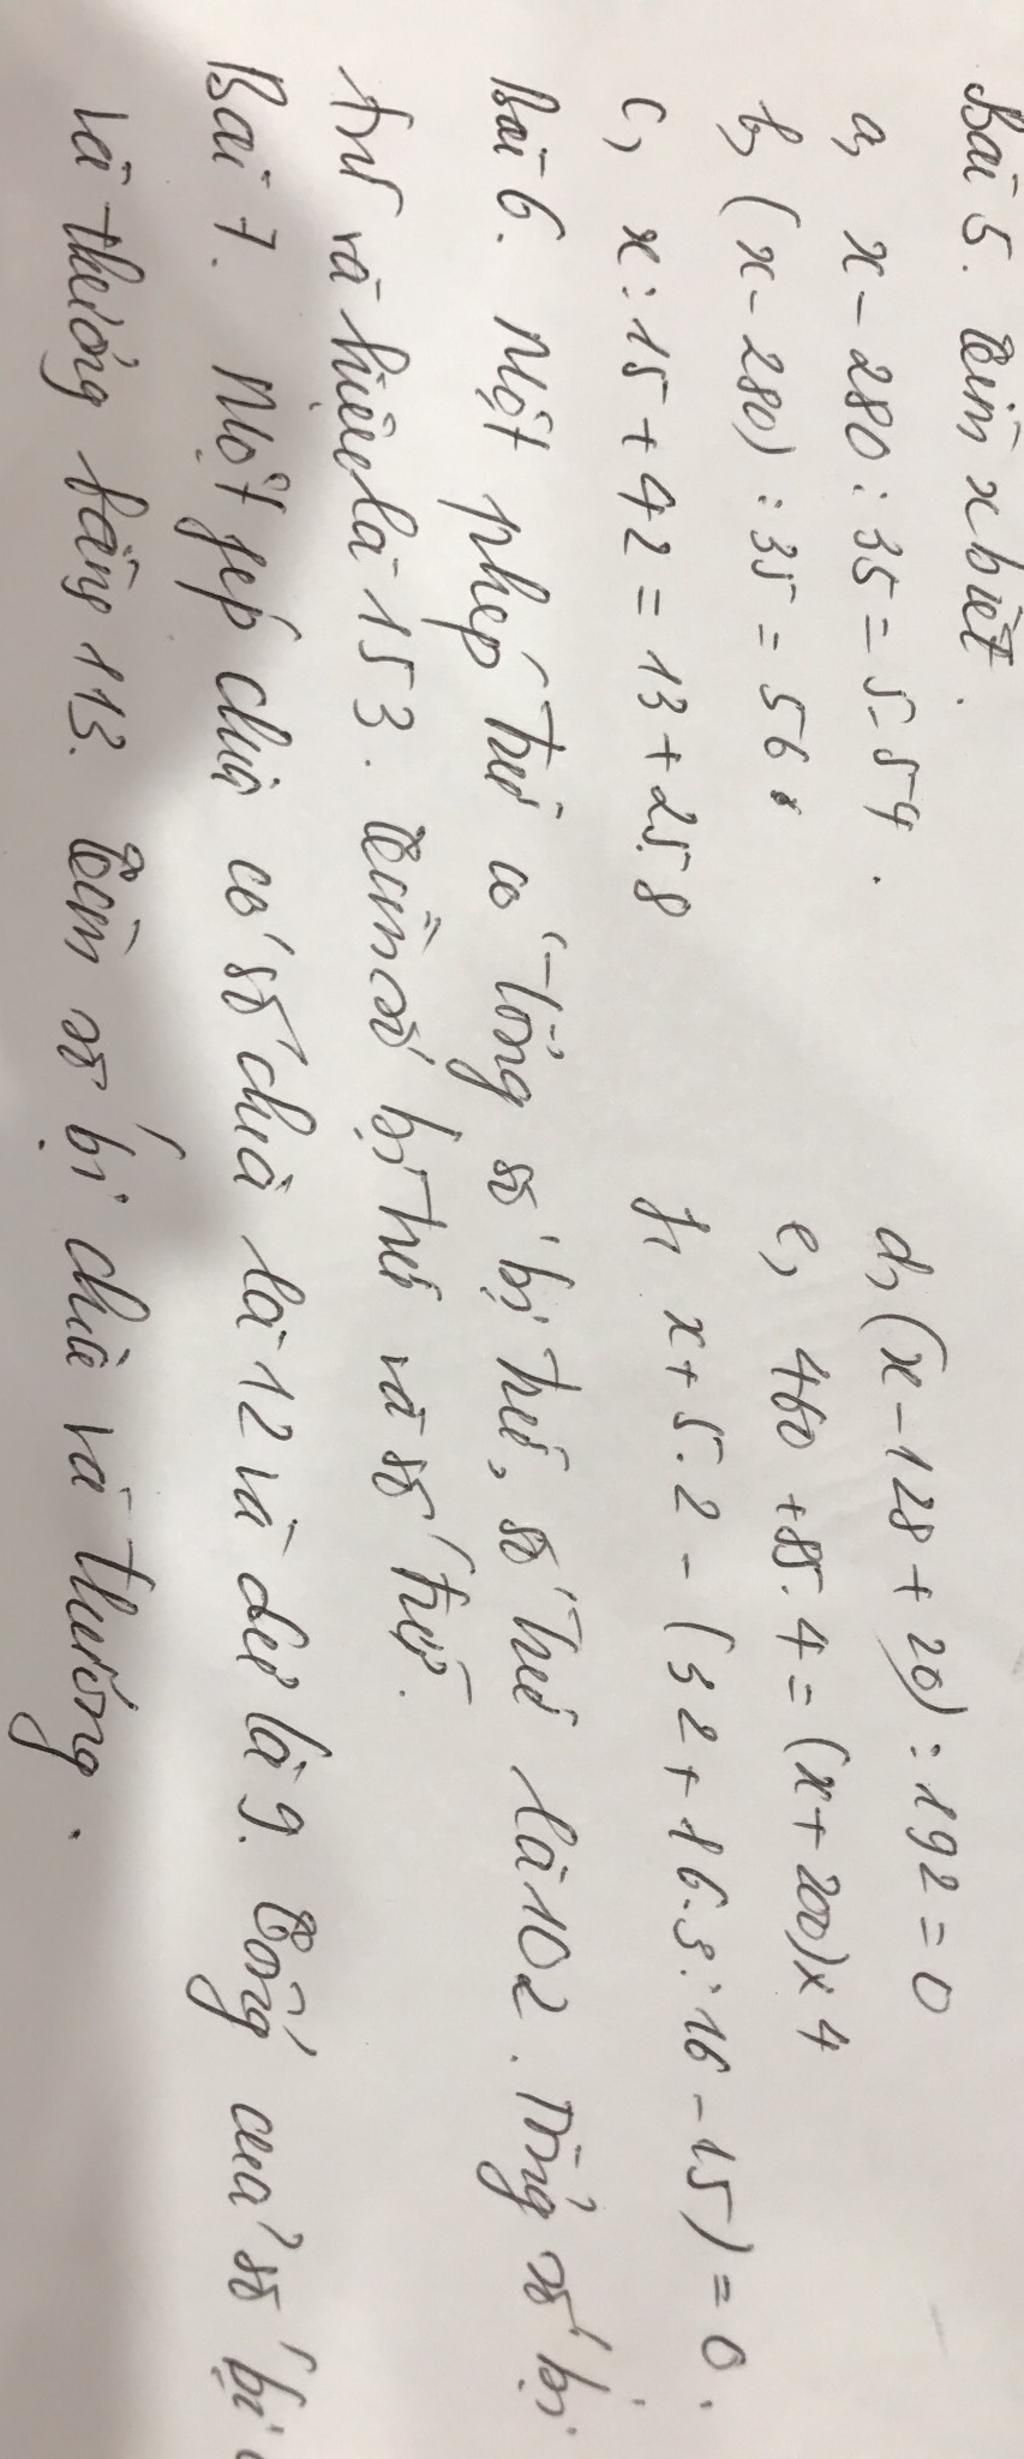 Bài 5. Tìm x biết.
a, x - 280 : 35 = 5.54.
d, (x - 128 + 20) : 192 = 0
b, (x - 280) : 35 = 56.
e, 460 + 85.4 = (x + 200) x 4
c, x : 15 + 42 = 13 + 25.8
f, x + 5.2 - (32 + 16.3 : 16 - 15) = 0.
Bài 6. Một phép trừ có tổng số bị trừ, số trừ là 102. Tổng số bị
trừ và hiệu là 153. Tìm số bị trừ và số trừ.
Bài 7. Một fép chia có số chia là 12 và dư là 9. Tổng của số bị
và thương bằng 113. Tìm số bị chia và thương.